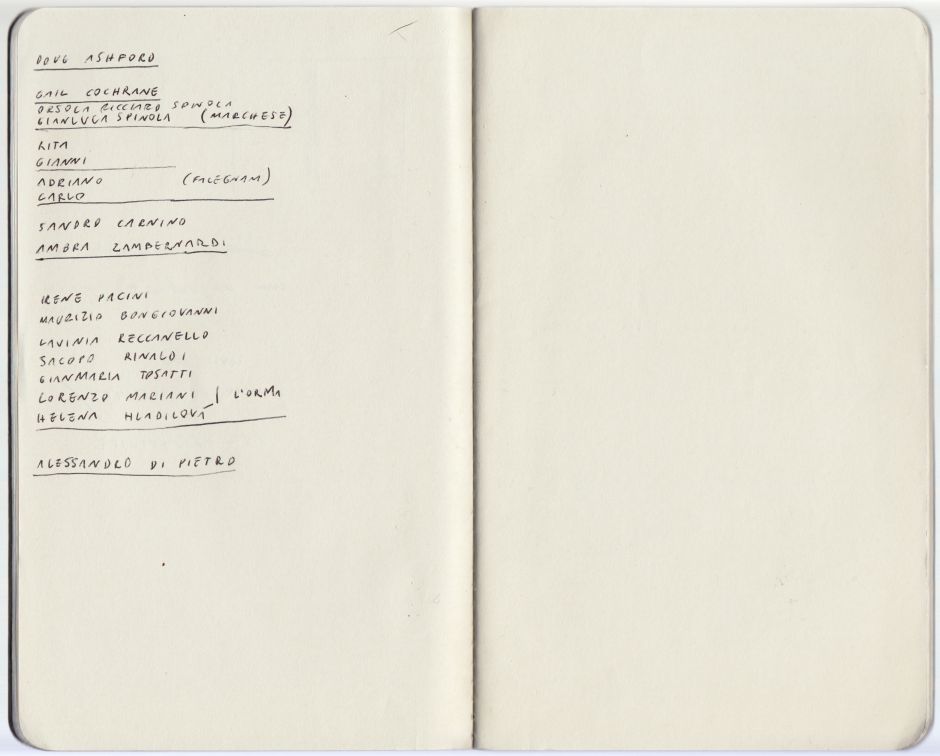 DOUG ASHFORD
GAIL COCHRANE
ORSOLA RICCIARDO SPINOLA
GIANLUCA SPINOLA (MARCHESE)
RITA
GIANNI
ADRIANO (FALEGNAMI)
CARLO
SANDRO CARNINO
AMBRA ZAMBERNARDI
IRENE PACINI
MAURIZIO BONGIOVANNI
LAVINIA RECCANELLO
SACOPO RINALDI
GIANMARIA TOSATTI
LORENZO MARIANI | L'ORMA
HELENA HLADILOVÁ
ALESSANDRO DI PIETRO